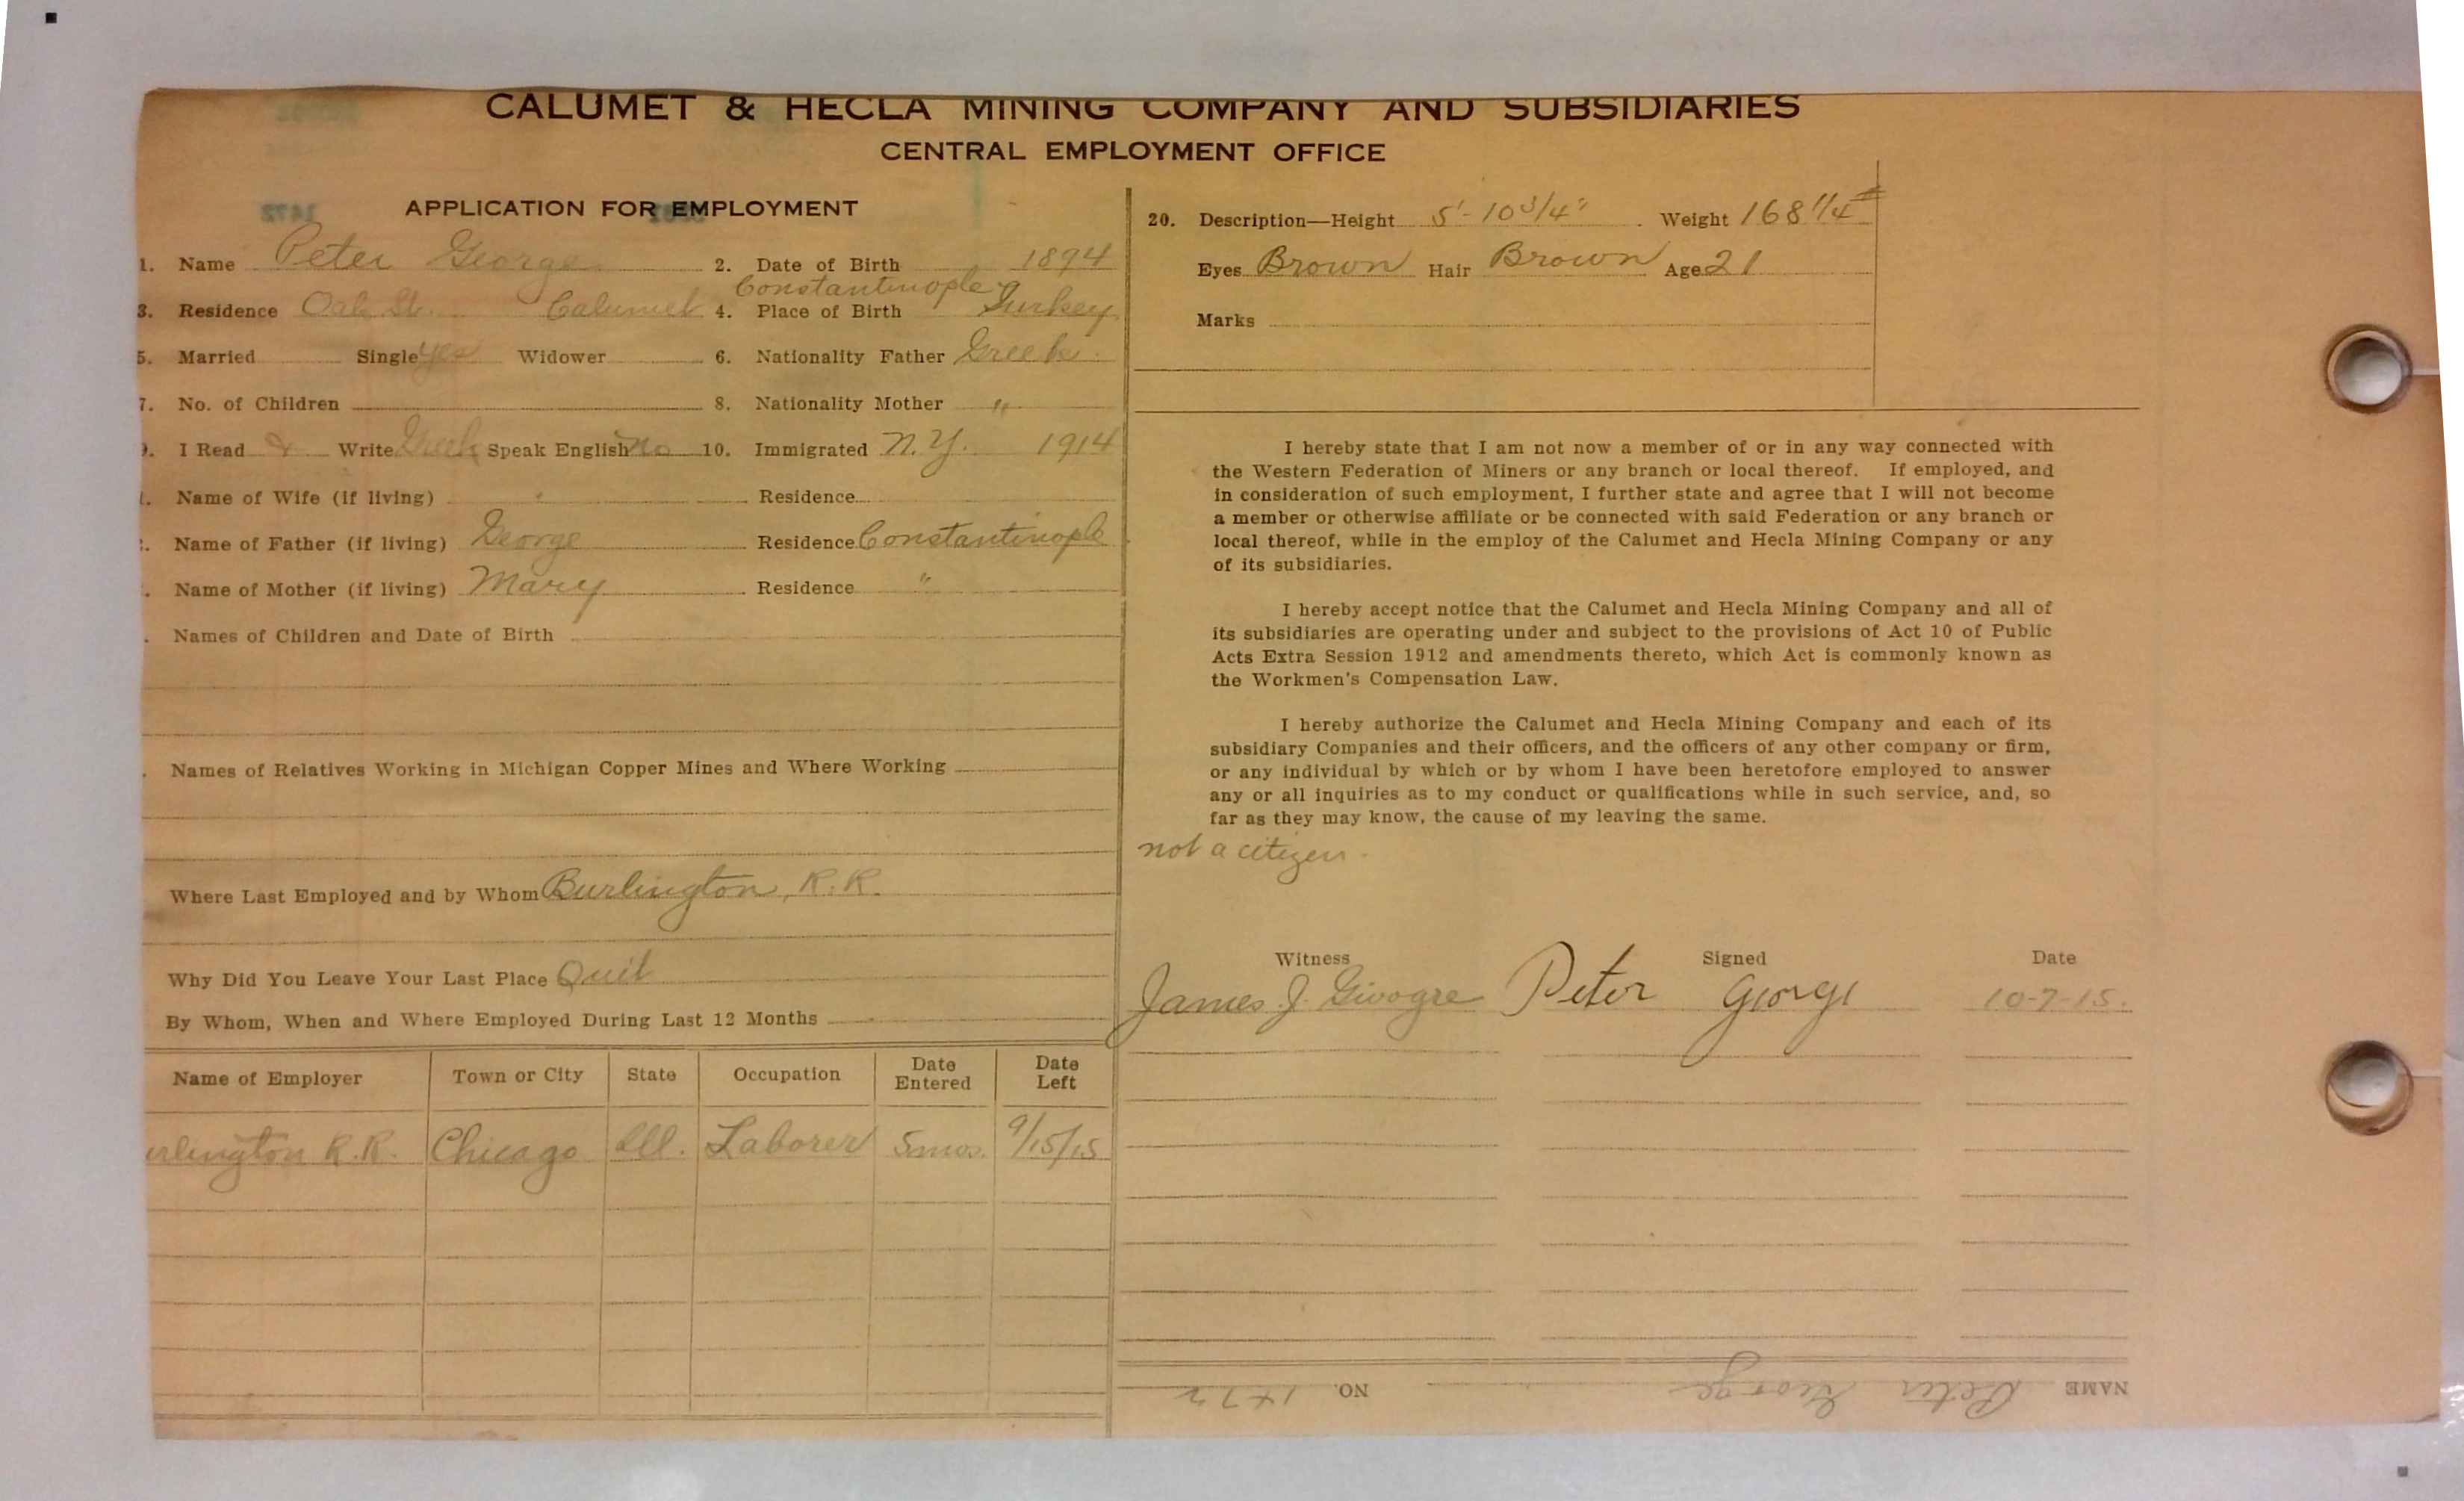 CALUMET & HECLA MINING COMPANY AND SUBSIDIARIES
CENTRAL EMPLOYMENT OFFICE
APPLICATION FOR EMPLOYMENT
1. Name Peter George 2. Date of Birth 1894
3. Residence Oak St. Calumet 4. Place of Birth Constantinople Turkey
5. Married Single yes Widower 6. Nationality Father Greek
7. No. of Children 8. Nationality Mother "
9. I Read & Write Greek Speak English no 10. Immigrated N.Y. 1914
Name of Wife (if living) Residence
Name of Father (if living) George Residence Constantinople
Name of Mother (if living) Mary Residence "
Names of Children and Date of Birth
Names of Relatives Working in Michigan Copper Mines and Where Working
Where Last Employed and by Whom Burlington, R.R.
Why Did You Leave Your Last Place Quit
By Whom, When and Where Employed During Last 12 Months
Name of Employer Town or City State Occupation Date Entered Date Left
urlington R.R. Chicago Ill. Laborer 5 mos. 9/15/15
20. Description—Height 5'-10 3/4" Weight 168 1/4 #
Eyes Brown Hair Brown Age 21
Marks
I hereby state that I am not now a member of or in any way connected with
the Western Federation of Miners or any branch or local thereof. If employed, and
in consideration of such employment, I further state and agree that I will not become
a member or otherwise affiliate or be connected with said Federation or any branch or
local thereof, while in the employ of the Calumet and Hecla Mining Company or any
of its subsidiaries.
I hereby accept notice that the Calumet and Hecla Mining Company and all of
its subsidiaries are operating under and subject to the provisions of Act 10 of Public
Acts Extra Session 1912 and amendments thereto, which Act is commonly known as
the Workmen's Compensation Law.
I hereby authorize the Calumet and Hecla Mining Company and each of its
subsidiary Companies and their officers, and the officers of any other company or firm,
or any individual by which or by whom I have been heretofore employed to answer
any or all inquiries as to my conduct or qualifications while in such service, and, so
far as they may know, the cause of my leaving the same.
not a citizen.
Witness Signed Date
James J. Peter George 10-7-15.
NAME Peter George NO. 1472